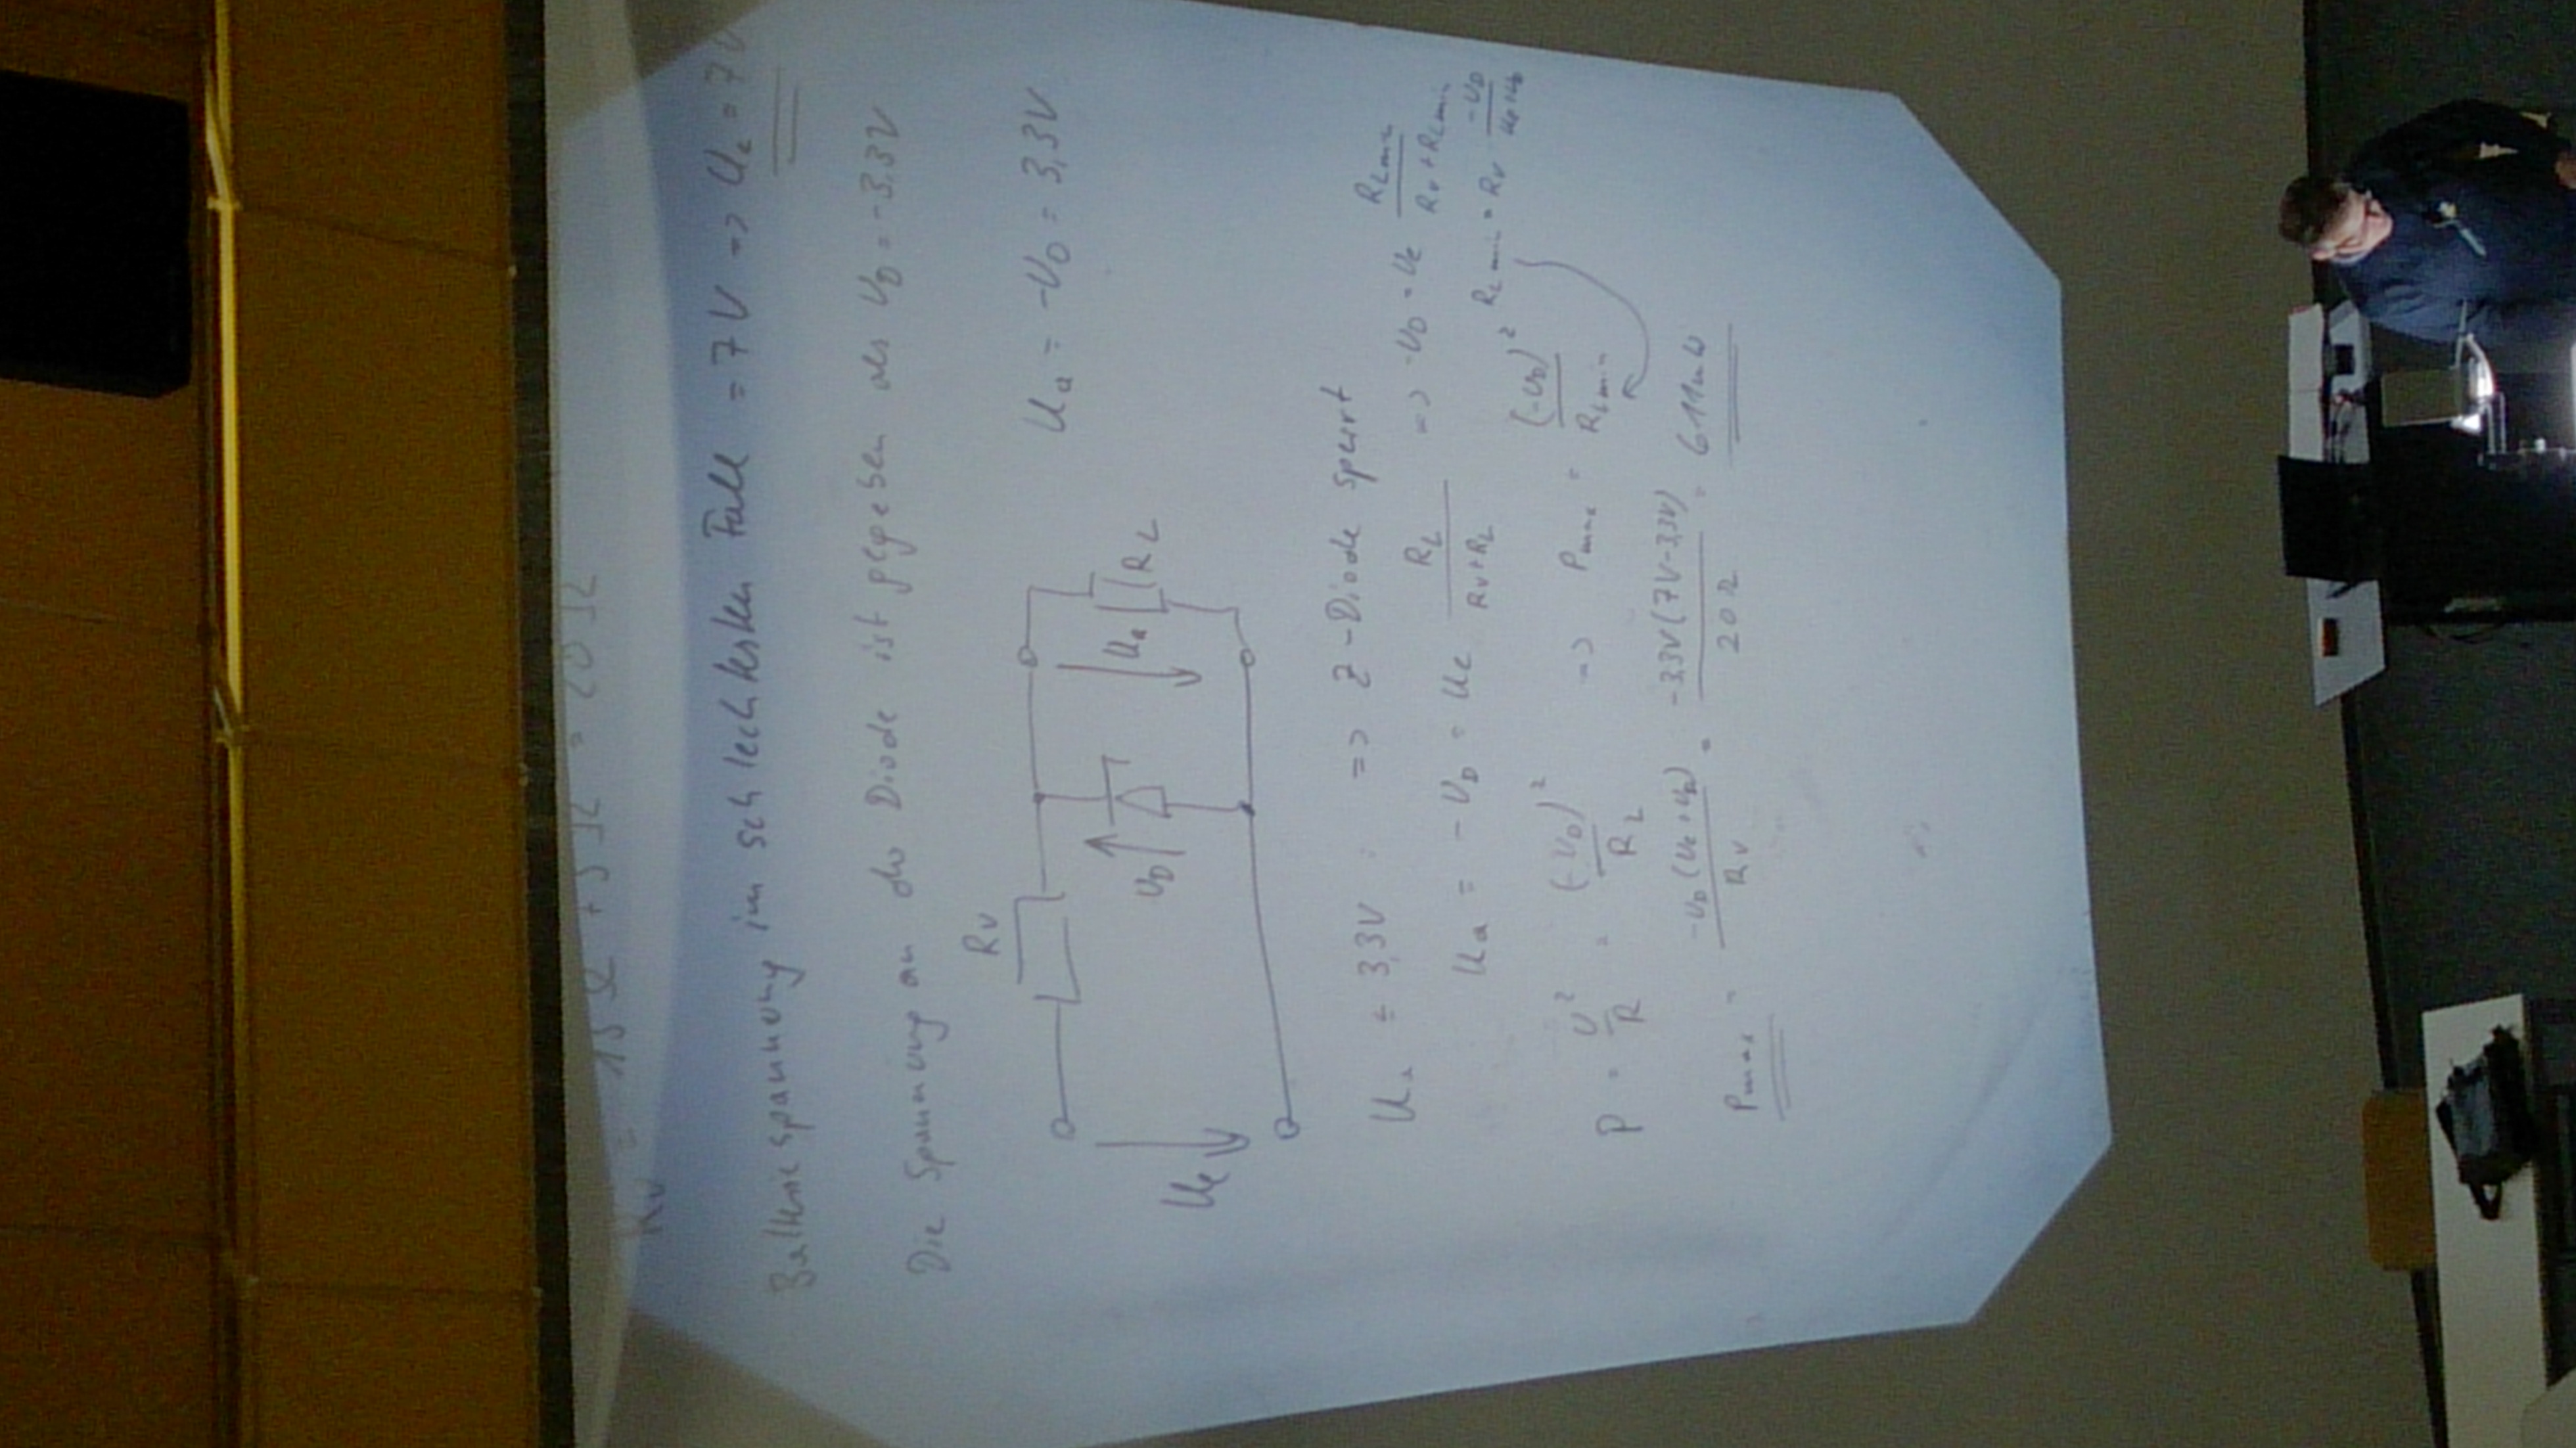 Rv = 15 Ω + 5 Ω = 20 Ω
Batteriespannung im schlechtesten Fall = 7V => Ue = 7V
Die Spannung an der Diode ist gegeben als UD = -3,3V
Rv
Ue
UD
Ua
RL
Ua = -UD = 3,3V
Ua ≤ 3,3V : => Z-Diode sperrt
Ua = -UD = Ue RL / (Rv+RL) => -UD = Ue RLmin / (Rv+RLmin)
RLmin = Rv -UD / (Ue+UD)
P = U² / R = (-UD)² / RL => Pmax = (-UD)² / RLmin
Pmax = -UD (Ue+UD) / Rv = -3,3V (7V-3,3V) / 20 Ω = 611mW